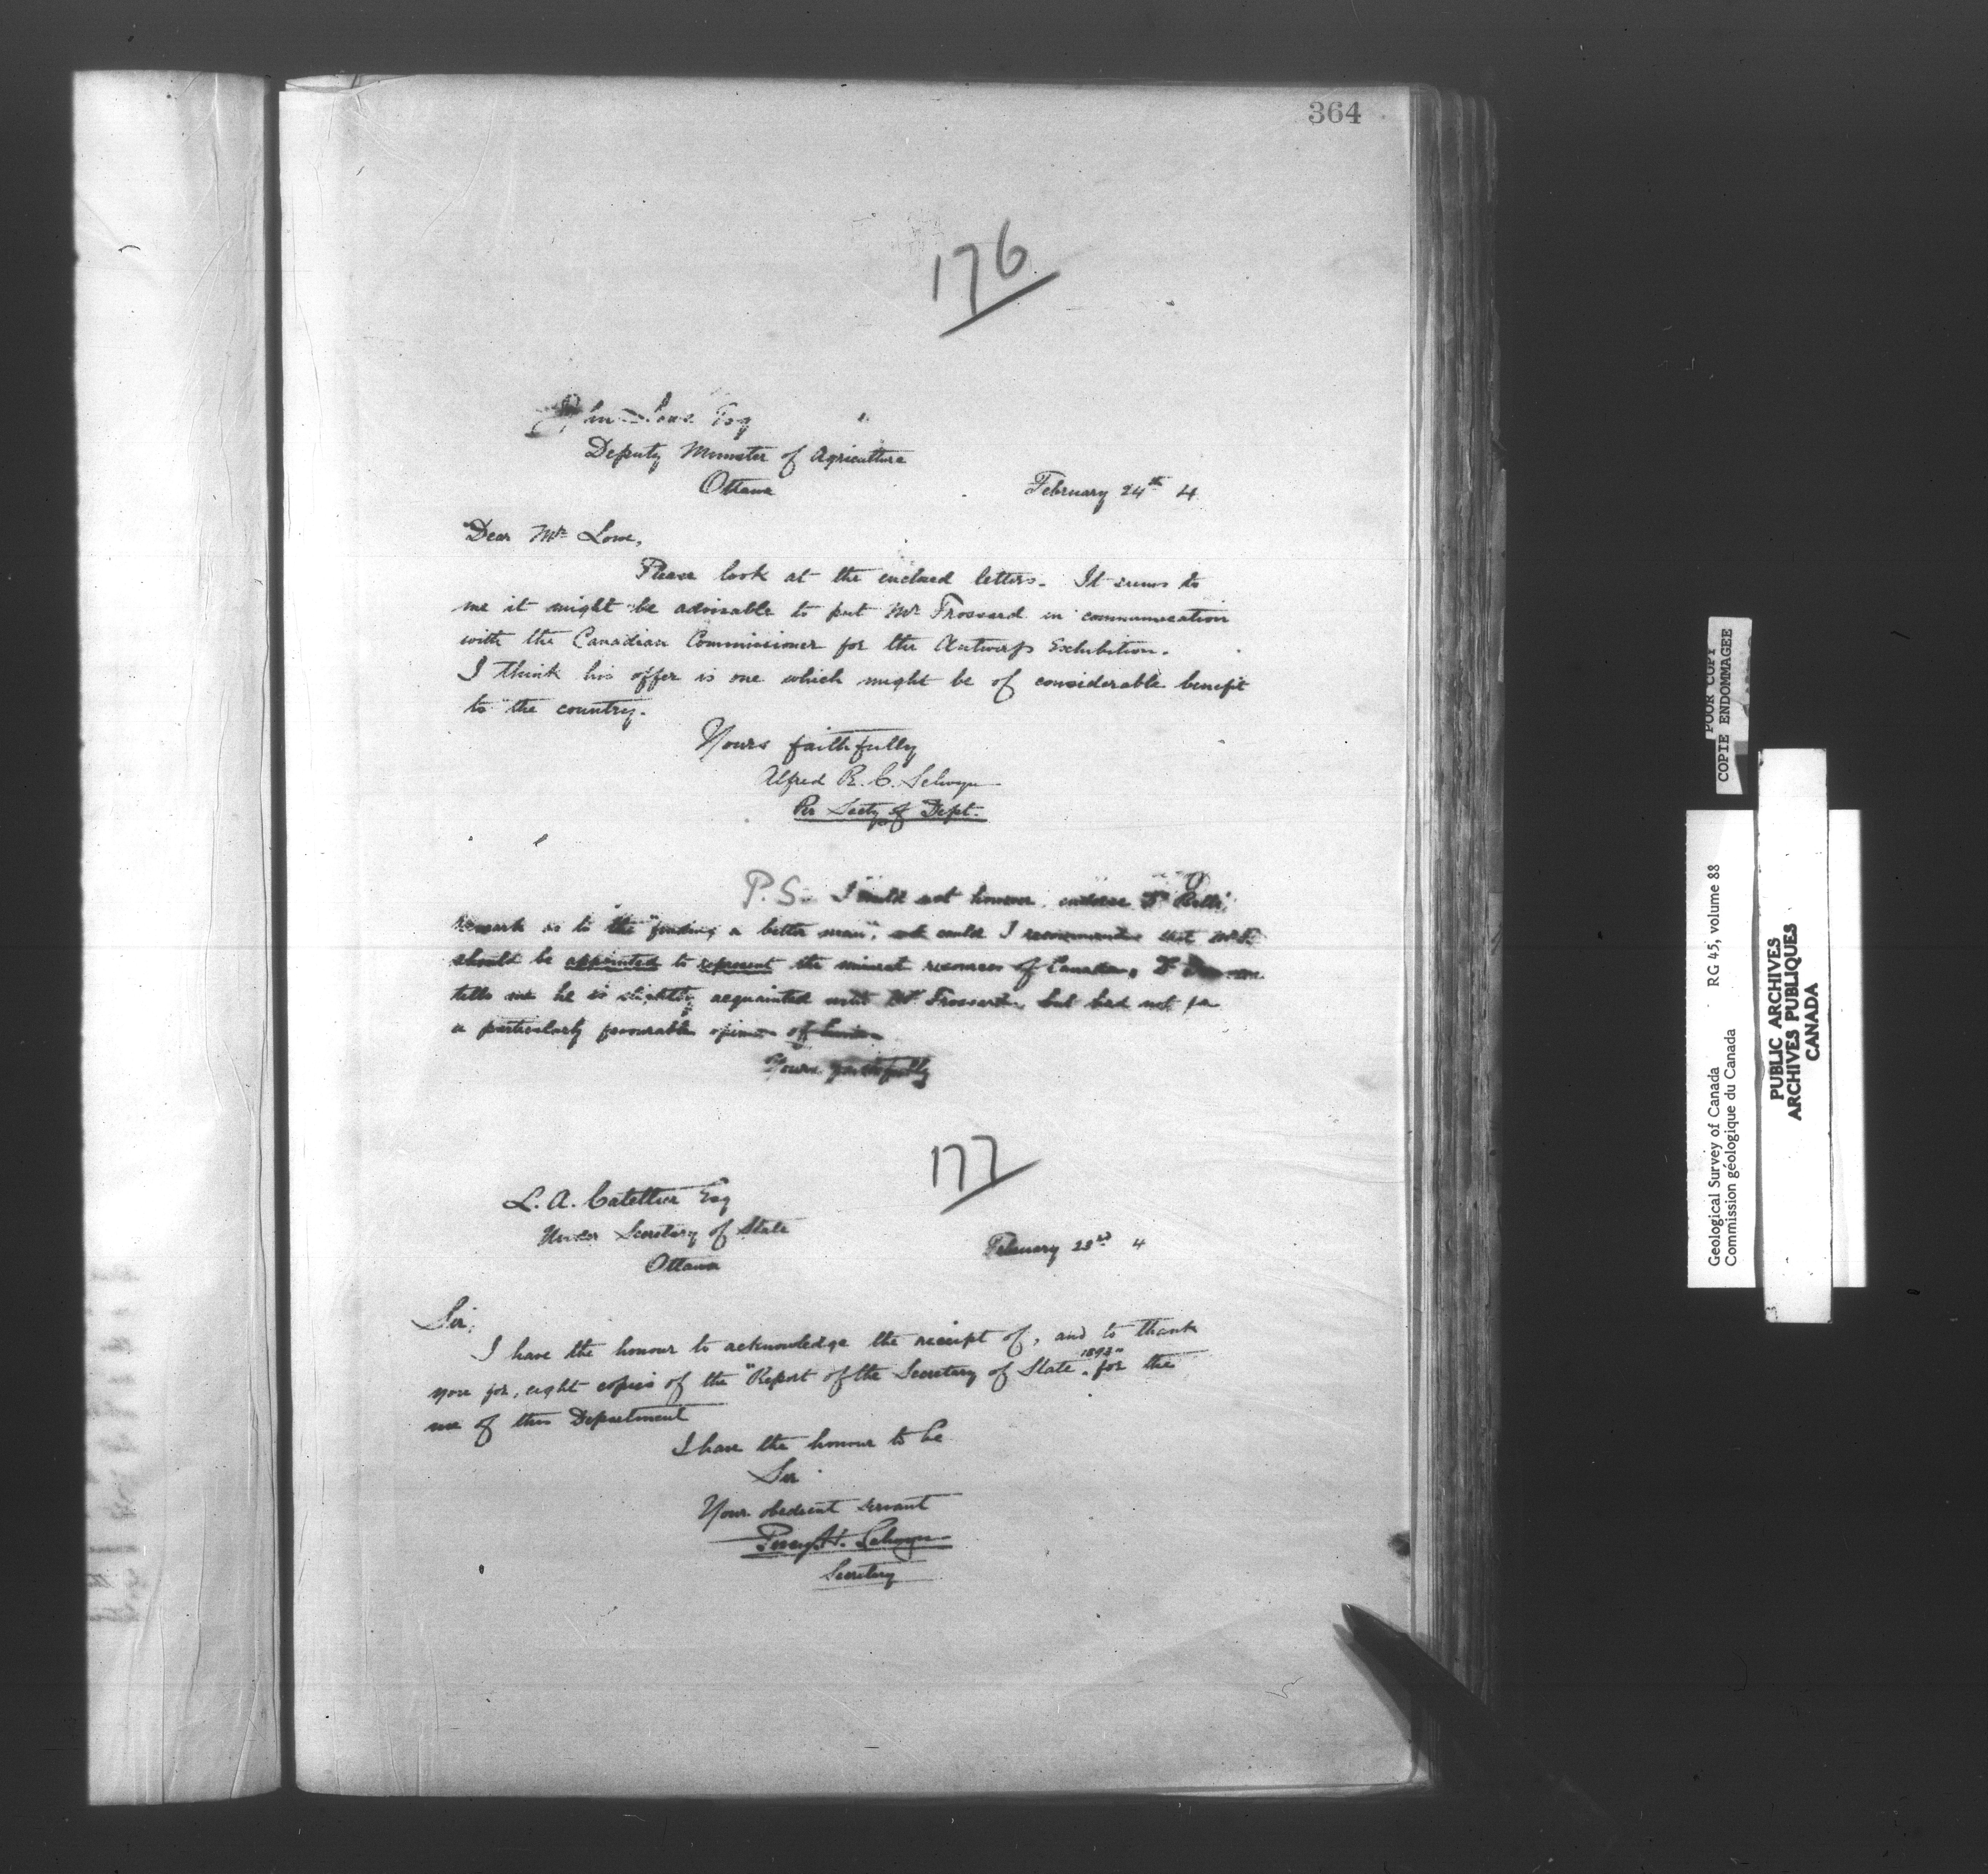 364
176
John Lowe Esq
Deputy Minister of Agriculture
Ottawa
February 24th 4
Dear Mr Lowe,
Please look at the enclosed letters. It seems to
me it might be advisable to put Mr Frossard in communication
with the Canadian Commissioner for the Antwerp Exhibition.
I think his offer is one which might be of considerable benefit
to the country.
Yours faithfully
Alfred R. C. Selwyn
Per Secty of Dept.
P.S. I could not however endorse Dr
remark as to the "finding a better man", could I recommend that Mr F.
should be appointed to represent the mineral resources of Canada. Dr
tells me he is slightly acquainted with Mr Frossard, but had not
a particularly favourable opinion of him
Yours faithfully
177
L. A. Catellier Esq
Under Secretary of State
Ottawa
February 23rd 4
Sir,
I have the honour to acknowledge the receipt of, and to thank
you for, eight copies of the "Report of the Secretary of State 1893" for the
use of this Department
I have the honour to be
Sir
Your obedient servant
Percy H. Selwyn
Secretary
POOR COPY
COPIE ENDOMMAGEE
Geological Survey of Canada RG 45, volume 88
Commission géologique du Canada
PUBLIC ARCHIVES
ARCHIVES PUBLIQUES
CANADA